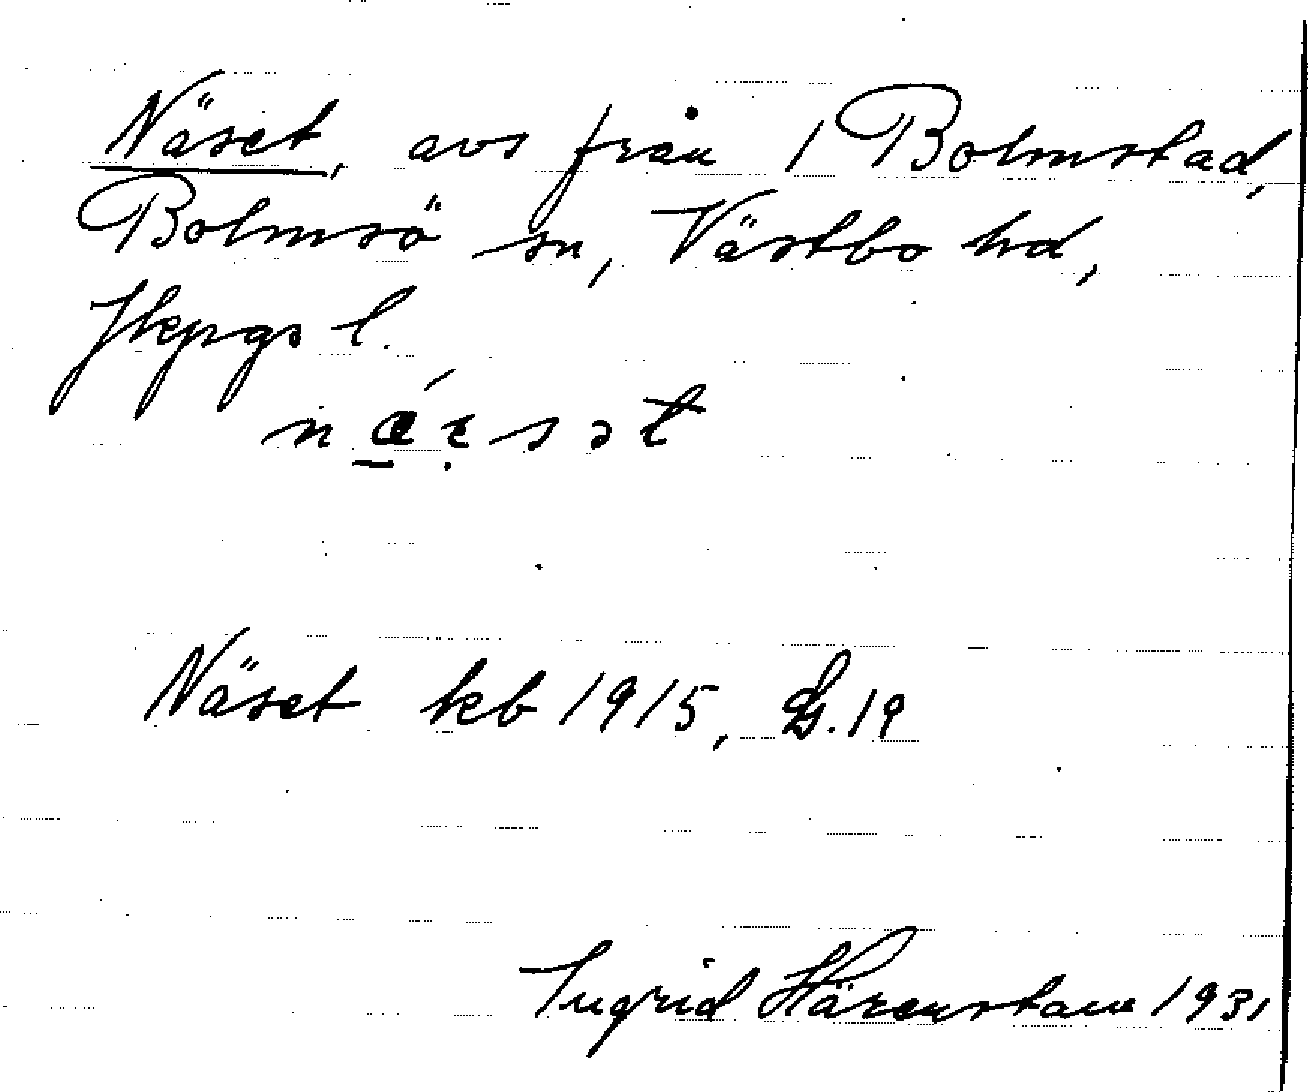 Näset, avs från 1 Bolmstad,
Bolmsö sn, Västbo hd,
Jkpgs l.
Näset kb 1915, 19
Ingrid Härenstam 1931